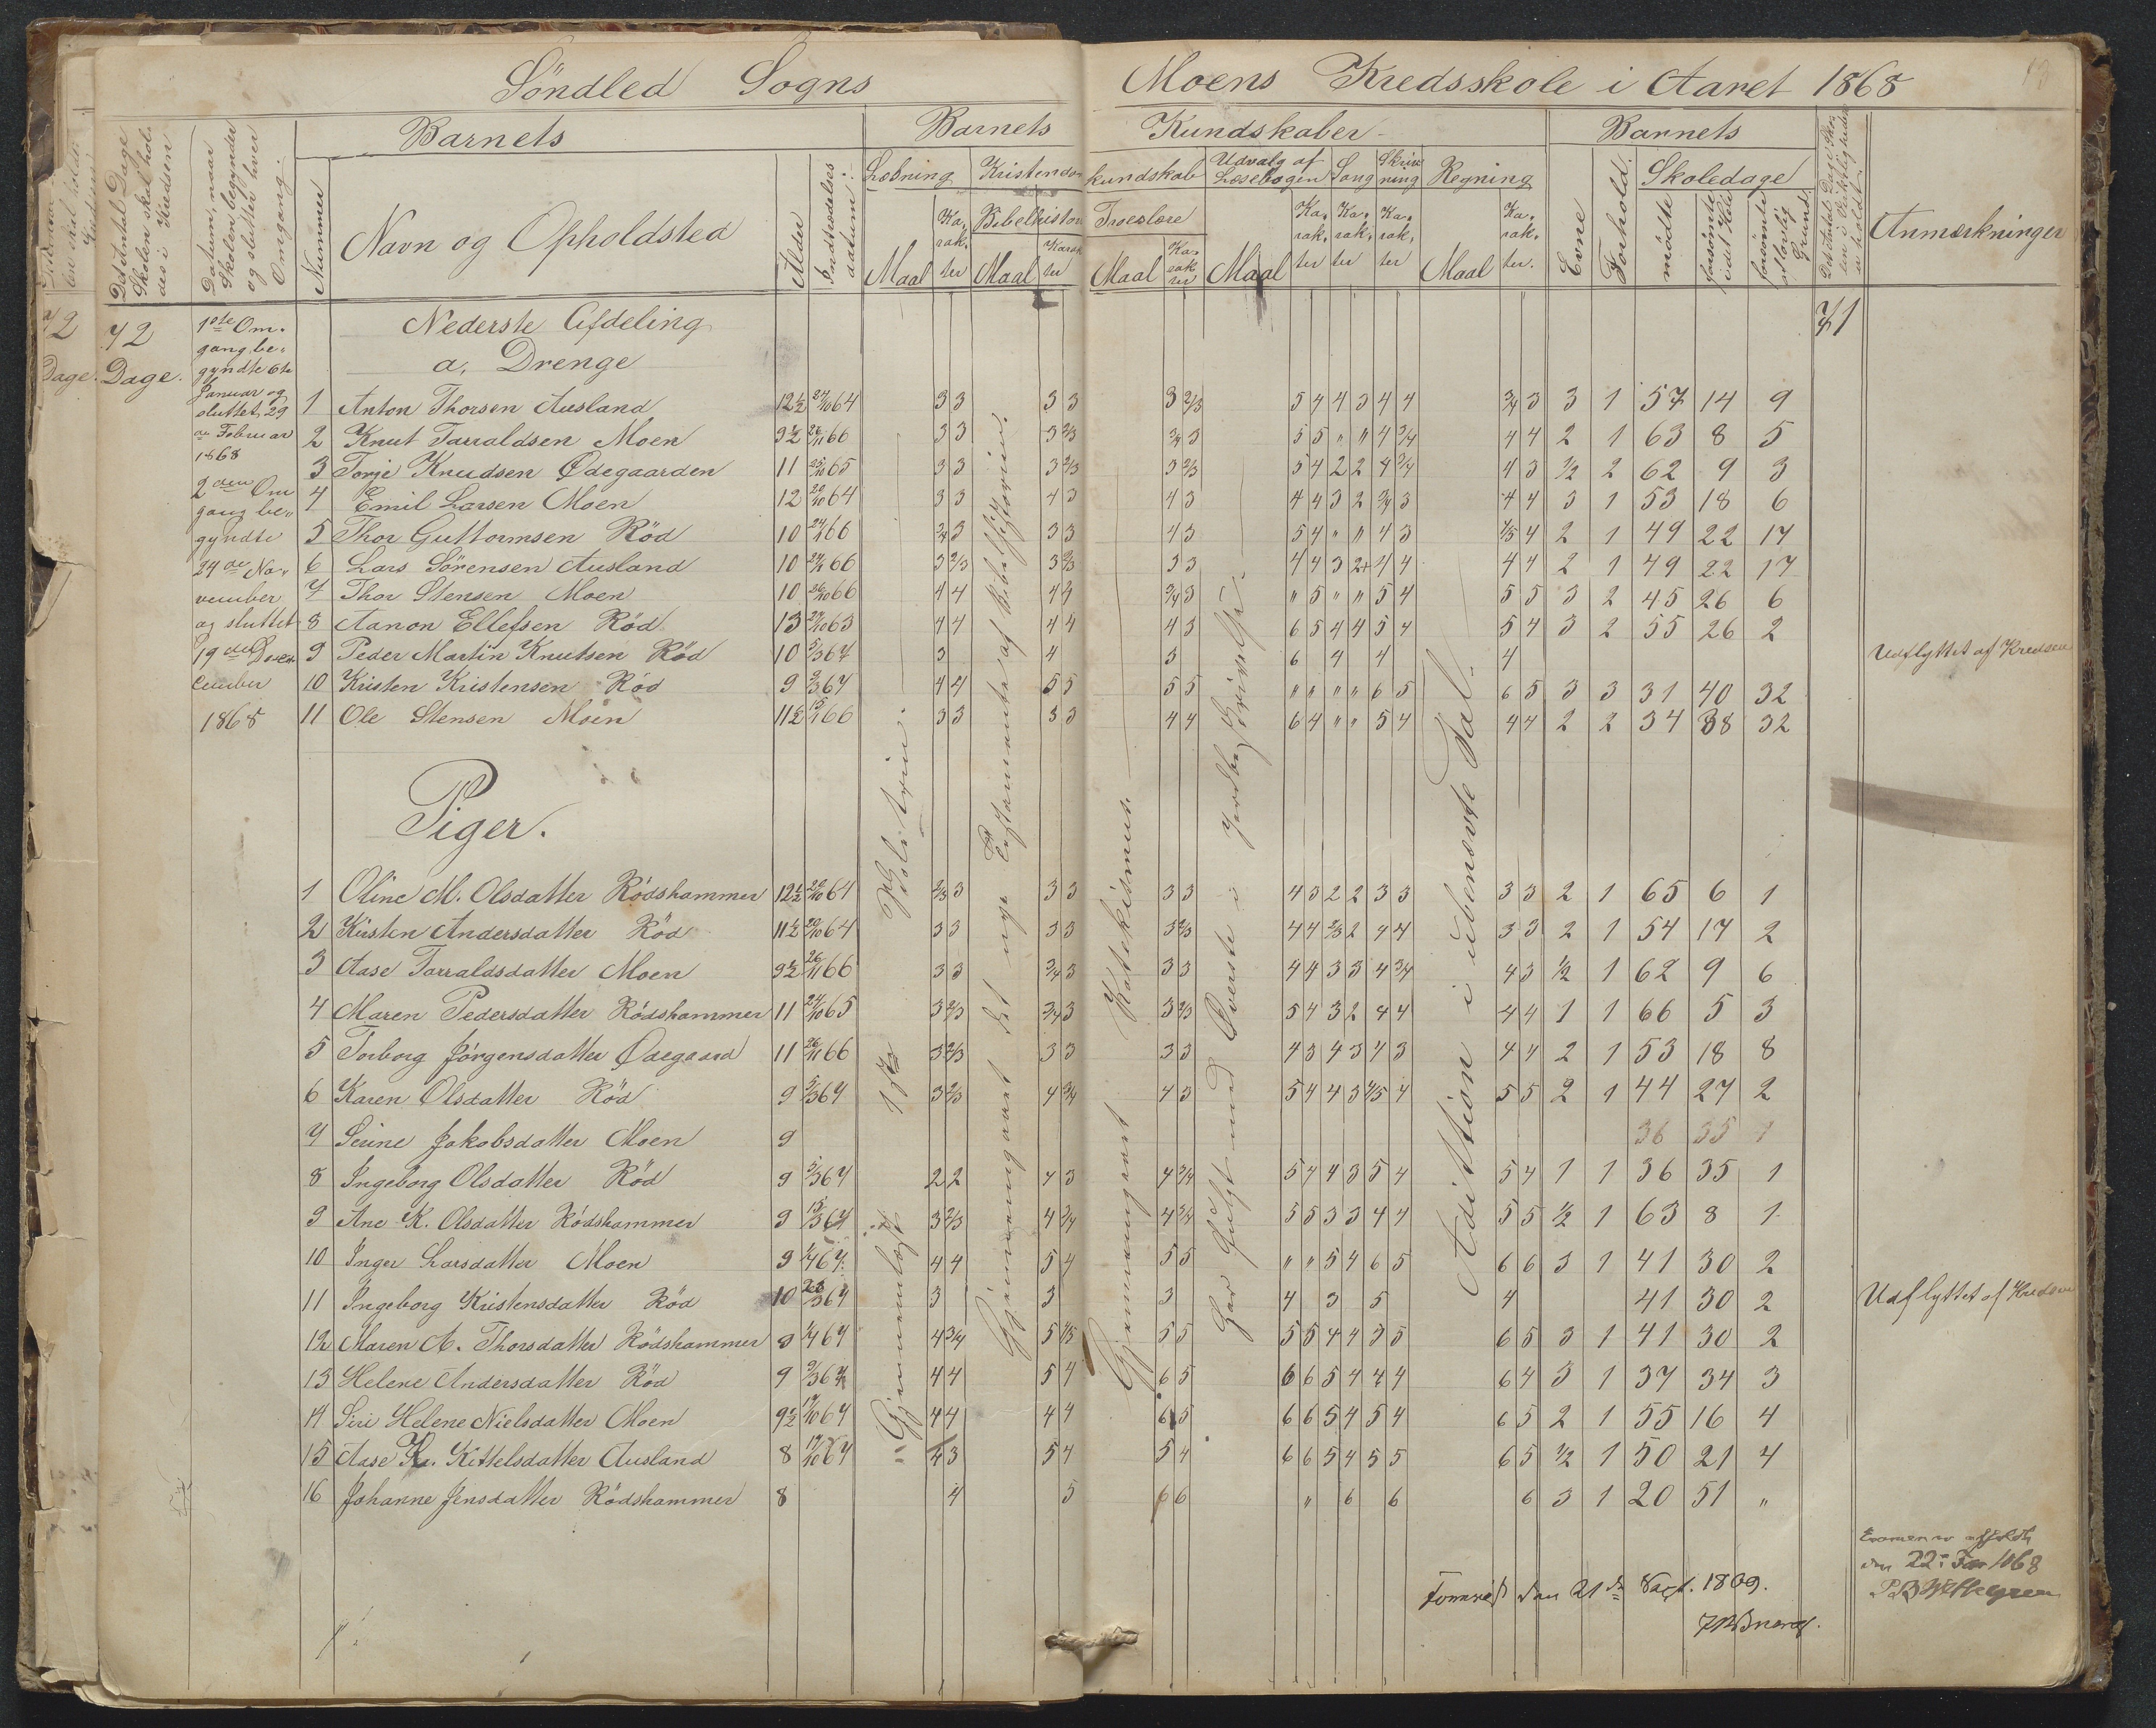 Söndled Sogns Moens Kredsskole i Aaret 1868
Barnets Barnets Kundskaber Barnets
Det Antal Dage Skolen skal holdes i Kredsen
Datum, naar Skolen begynder og slutter hver Omgang.
Nummer
Navn og Opholdsted
Alder
Indtrædelses datum
Læsning Kristendomskundskab Udvalg af Læsebogen Sang Skrivning Regning
Maal Karakter Bibelhistorie Maal Karakter Troeslære Maal Karakter Maal Karakter Karakter Karakter Maal Karakter.
Evne Forhold. Skoledage mødte forsømte i det Hele forsømte af lovlig Grund
Anmærkninger
72 Dage.
72 Dage.
1ste Omgang begyndte 6te Januar og sluttet 29 de Februar 1868
2den Omgang begyndte 24de November og sluttet 19de December 1868
Nederste Afdeling 71
a, Drenge
1 Anton Thorsen Ausland 12½ 24/10 64 3 3 3 3 3 2/3 5 4 4 3 4 4 3/4 3 3 1 57 14 9
2 Knut Tarraldsen Moen 9½ 26/11 66 3 3 3 2/3 3/4 3 5 5 " " 4 3/4 4 4 2 1 63 8 5
3 Torje Knudsen Ødegaarden 11 25/10 65 3 3 3 2/3 3 2/3 5 4 2 2 4 3/4 4 3 1/2 2 62 9 3
4 Emil Larsen Moen 12 20/10 64 3 3 4 3 4 3 4 4 3 2 3/4 3 4 4 3 1 53 18 6
5 Thor Guttormsen Röd 10 24/11 66 3/4 3 3 3 4 3 5 4 " " 4 3 4/5 4 2 1 49 22 17
6 Lars Sörensen Ausland 10 24/11 66 3 2/3 3 2/3 3 3 4 4 3 2+ 4 4 4 4 2 1 49 22 17
7 Thor Stensen Moen 10 26/10 66 4 4 4 4 3/4 3 " 5 " " 5 4 5 5 3 2 45 26 6
8 Aanon Ellefsen Röd 13 27/10 63 4 4 4 4 4 3 6 5 4 4 5 4 5 4 3 2 55 26 2
9 Peder Martin Knutsen Röd 10 5/3 67 3 4 3 6 4 4 4 Udflyttet af Kredsen
10 Kristen Kristensen Röd 9 9/3 67 4 4 5 5 5 5 " " " " 6 5 6 5 3 3 31 40 32
11 Ole Stensen Moen 11½ 15/1 66 3 3 3 3 4 4 6 4 " " 5 4 4 4 2 2 34 38 32
Piger.
1 Oline M. Olsdatter Rödshammer 12½ 22/10 64 2/3 3 3 3 3 3 4 3 2 2 3 3 3 3 2 1 65 6 1
2 Kirsten Andersdatter Röd 11½ 20/10 64 3 3 3 3 3 2/3 4 4 2/3 2 4 4 3 3 2 1 54 17 2
3 Aase Tarraldsdatter Moen 9½ 26/11 66 3 3 3/4 3 3 3 4 4 3 3 4 3/4 4 3 1/2 1 62 9 6
4 Maren Pedersdatter Rödshammer 11 24/10 65 3 2/3 3/4 3 3 2/3 5 4 3 2 4 4 4 4 1 1 66 5 3
5 Torborg Jörgensdatter Ödegaard 11 26/11 66 3 2/3 3 3 3 3 4 3 4 3 4 3 4 4 2 1 53 18 8
6 Karen Olsdatter Röd 9 5/3 67 3 2/3 4 3/4 4 3 5 4 4 3 4/5 4 5 5 2 1 44 27 2
7 Serine Jakobsdatter Moen 9 36 35 1
8 Ingeborg Olsdatter Röd 9 5/3 67 2 2 4 3 4 3/4 5 4 4 3 5 4 5 4 1 1 36 35 1
9 Ane K. Olsdatter Rödshammer 9 15/3 67 3 2/3 4 3/4 4 3/4 5 5 3 3 4 4 5 5 1/2 1 63 8 1
10 Inger Larsdatter Moen 9 1/4 67 4 4 5 4 5 5 " " 5 4 6 5 6 6 3 1 41 30 2
11 Ingeborg Kristensdatter Röd 10 28/3 67 3 3 3 4 3 5 4 41 30 2 Udflyttet af Kredsen
12 Maren A. Thorsdatter Rödshammer 8 1/4 67 4 3/4 5 4/5 5 5 5 5 4 4 5 5 6 5 3 1 41 30 2
13 Helene Andersdatter Röd 9 9/3 67 4 4 5 4 6 5 6 6 5 4 4 4 6 4 3 1 37 34 3
14 Siri Helene Nielsdatter Moen 9½ 17/10 67 4 4 4 4 6 5 6 6 5 4 5 4 6 5 2 1 55 16 4
15 Aase Kr. Kittelsdatter Ausland 8 19/10 67 4 3 5 4 5 4 6 6 5 4 5 5 6 5 1/2 1 50 21 4
16 Johanne Jensdatter Rödshammer 8 4 5 6 6 " 6 6 6 3 1 20 51 "
Gjennemlæst 1ste
Gjennemgaaet det nye Testamente af Bibelhistorien.
Gjennemgaaet Katekismus.
Addition i ubenevnte Tal.
den 22
1868
den 21de Sept. 1869.